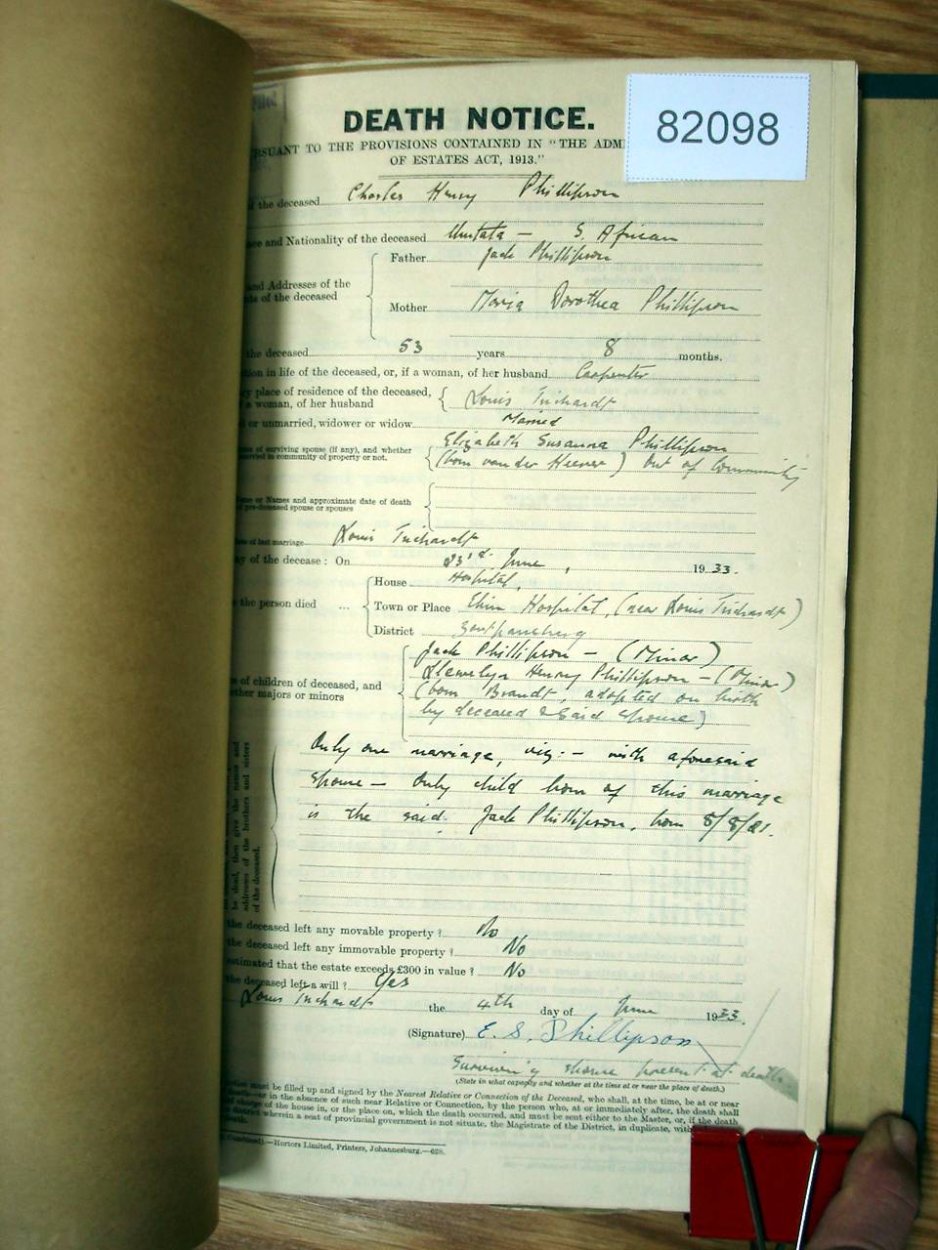 82098
DEATH NOTICE.
RSUANT TO THE PROVISIONS CONTAINED IN "THE ADM
OF ESTATES ACT, 1913."
f the deceased Charles Henry Phillipson
ace and Nationality of the deceased Umtata — S. African
and Addresses of the
ts of the deceased
Father Jack Phillipson
Mother Maria Dorothea Phillipson
the deceased 53 years 8 months.
tion in life of the deceased, or, if a woman, of her husband Carpenter
ry place of residence of the deceased,
a woman, of her husband
Louis Trichardt
d or unmarried, widower or widow Married
me of surviving spouse (if any), and whether
married in community of property or not.
Elizabeth Susanna Phillipson
(born van der Heever) Out of Community
me or Names and approximate date of death
of pre-deceased spouse or spouses
ce of last marriage Louis Trichardt
ay of the decease : On June, 1933.
e the person died ...
House Hospital,
Town or Place Elim Hospital, (near Louis Trichardt)
District Zoutpansberg
s of children of deceased, and
ether majors or minors
Jack Phillipson — (Minor)
Llewelyn Henry Phillipson — (Minor)
(born Brandt, adopted on birth
by deceased & said spouse)
be dead, then give the names and
addresses of the brothers and sisters
of the deceased.
Only one marriage, viz: — with aforesaid
spouse — Only child born of this marriage
is the said Jack Phillipson, born 8/8/21.
the deceased left any movable property ? No
the deceased left any immovable property ? No
estimated that the estate exceeds £300 in value ? No
the deceased left a will ? Yes
Louis Trichardt the 4th day of June 1933.
(Signature) E. S. Phillipson
Surviving spouse present at death.
(State in what capacity and whether at the time at or near the place of death.)
otice must be filled up and signed by the Nearest Relative or Connection of the Deceased, who shall, at the time, be at or near
death—or in the absence of such near Relative or Connection, by the person who, at or immediately after, the death shall
charge of the house in, or the place on, which the death occurred, and must be sent either to the Master, or, if the death
district wherein a seat of provincial government is not situate, the Magistrate of the District, in duplicate, with
death.
Combined).—Hortors Limited, Printers, Johannesburg.—628.